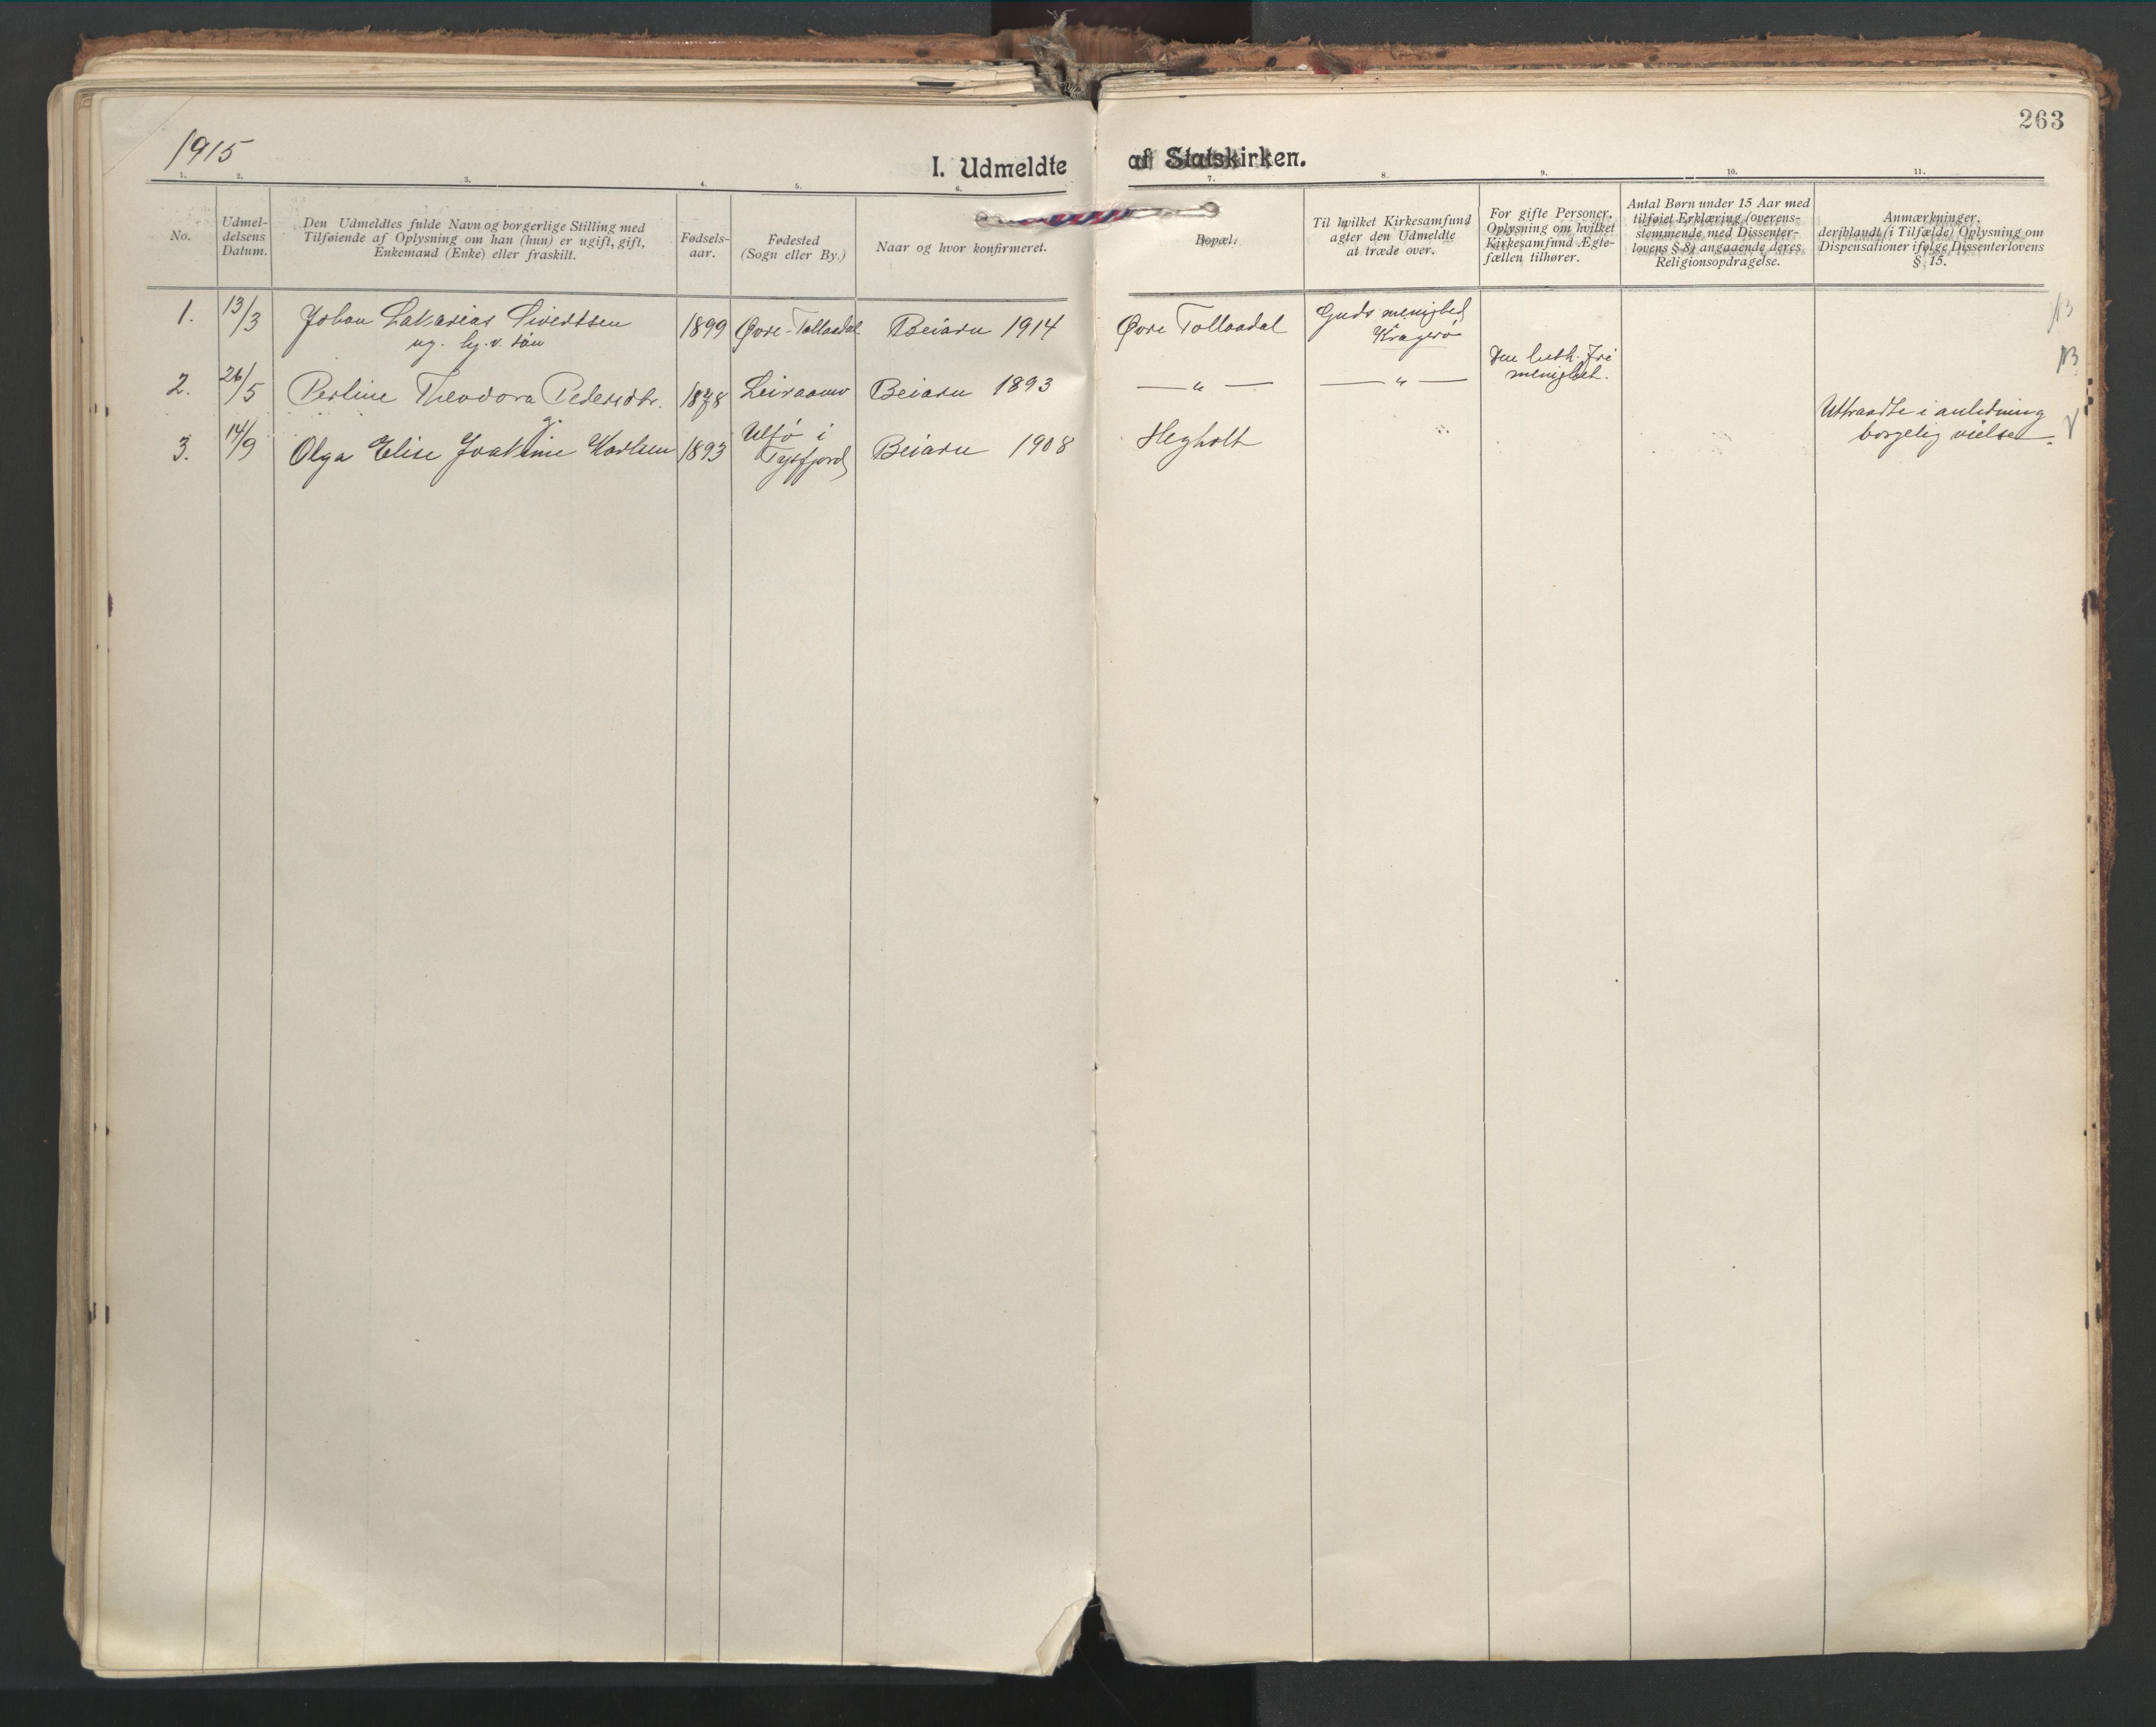 263
1915
I. Udmeldte af Statskirken.
1. 2. 3. 4. 5. 6. 7. 8. 9. 10. 11.
No.
Udmel-
delsens
Datum.
Den Udmeldtes fulde Navn og borgerlige Stilling med
Tilføiende af Oplysning om han (hun) er ugift, gift,
Enkemand (Enke) eller fraskilt.
Fødsels-
aar.
Fødested
(Sogn eller By.)
Naar og hvor konfirmeret.
Bopæl.
Til hvilket Kirkesamfund
agter den Udmeldte
at træde over.
For gifte Personer,
Oplysning om hvilket
Kirkesamfund Ægte-
fællen tilhører.
Antal Børn under 15 Aar med
tilføiet Erklæring (overens-
stemmende med Dissenter-
lovens § 8) angaaende deres
Religionsopdragelse.
Anmærkninger,
deriblandt (i Tilfælde) Oplysning om
Dispensationer ifølge Dissenterlovens
§ 15.
1. 13/3 Johan Sakarias Sivertsen 1899 Øvre-Tollaadal Beiarn 1914 Øvre Tollaadal Guds menighed
ug. søn Kragerø
2. 26/5 Perline Theodora Pedersdtr. 1878 Beiarn 1893 — " — — " — Den luth. Fri
menighet.
3. 14/9 Olga Elise Joakime Karlsen 1893 i
Tysfjord Beiarn 1908 Hegholt Uttraadte i anledning
borgelig vielse.